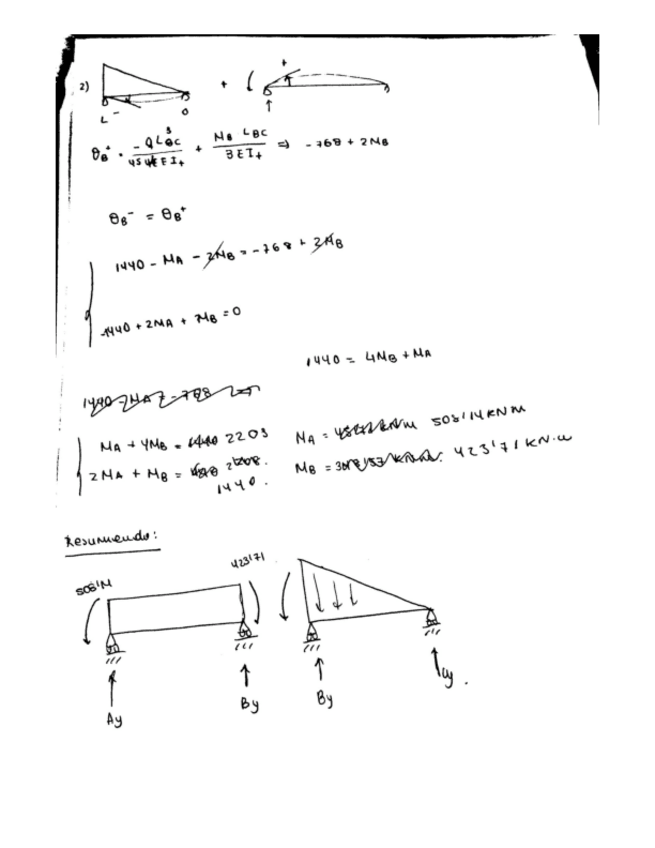 2)
+
+
L
-
O
θB⁺ = -QL³BC / 45 EI+ + MB LBC / 3EI+ ⇒ -768 + 2MB
θB⁻ = θB⁺
1440 - MA - 2MB = -768 + 2MB
-1440 + 2MA + MB = 0
1440 = 4MB + MA
MA + 4MB = 2208
2MA + MB = 1440.
MA = 508'14 KN m
MB = 423'71 KN·m
Resumiendo:
508'14
423'71
Ay
By
By
Cy.